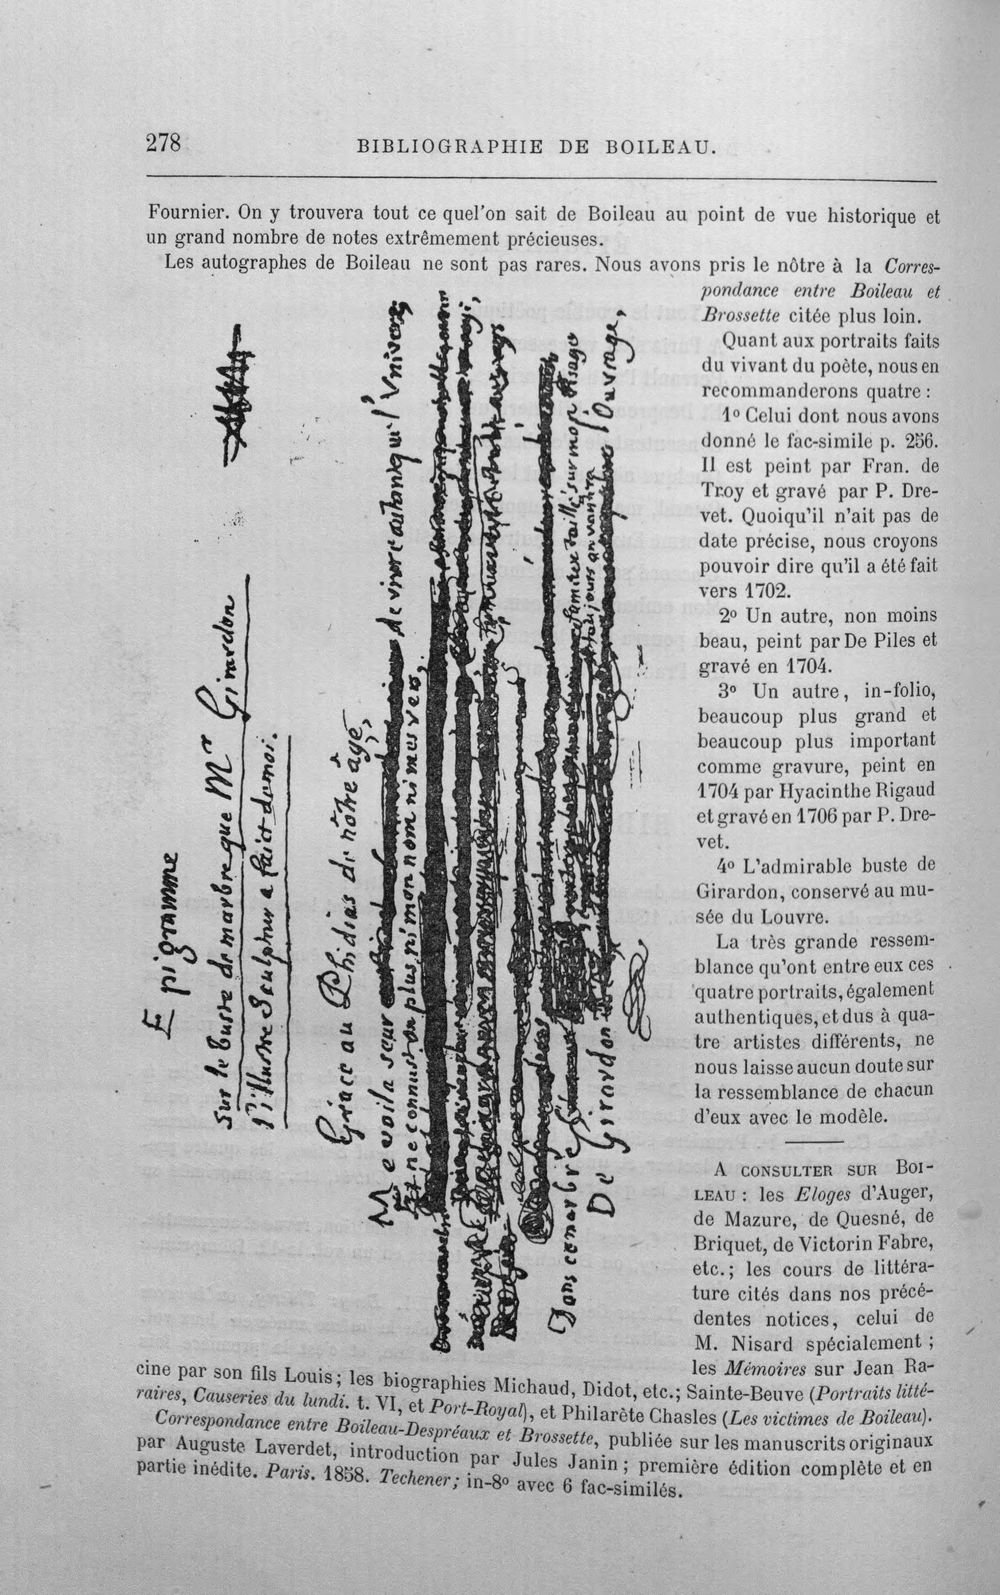 278
BIBLIOGRAPHIE DE BOILEAU.
Fournier. On y trouvera tout ce quel'on sait de Boileau au point de vue historique et
un grand nombre de notes extrêmement précieuses.
Les autographes de Boileau ne sont pas rares. Nous avons pris le nôtre à la Corres-
pondance entre Boileau et
Brossette citée plus loin.
Quant aux portraits faits
du vivant du poète, nous en
recommanderons quatre :
1º Celui dont nous avons
donné le fac-simile p. 256.
Il est peint par Fran. de
Troy et gravé par P. Dre-
vet. Quoiqu'il n'ait pas de
date précise, nous croyons
pouvoir dire qu'il a été fait
vers 1702.
2º Un autre, non moins
beau, peint par De Piles et
gravé en 1704.
3º Un autre, in-folio,
beaucoup plus grand et
beaucoup plus important
comme gravure, peint en
1704 par Hyacinthe Rigaud
et gravé en 1706 par P. Dre-
vet.
4º L'admirable buste de
Girardon, conservé au mu-
sée du Louvre.
La très grande ressem-
blance qu'ont entre eux ces
quatre portraits, également
authentiques, et dus à qua-
tre artistes différents, ne
nous laisse aucun doute sur
la ressemblance de chacun
d'eux avec le modèle.
A CONSULTER SUR BOI-
LEAU : les Eloges d'Auger,
de Mazure, de Quesné, de
Briquet, de Victorin Fabre,
etc.; les cours de littéra-
ture cités dans nos précé-
dentes notices, celui de
M. Nisard spécialement ;
les Mémoires sur Jean Ra-
cine par son fils Louis; les biographies Michaud, Didot, etc.; Sainte-Beuve (Portraits litté-
raires, Causeries du lundi. t. VI, et Port-Royal), et Philarète Chasles (Les victimes de Boileau).
Correspondance entre Boileau-Despréaux et Brossette, publiée sur les manuscrits originaux
par Auguste Laverdet, introduction par Jules Janin ; première édition complète et en
partie inédite. Paris. 1858. Techener; in-8º avec 6 fac-similés.
Epigramme
Sur le buste de marbre que Mr Girardon
l'illustre Sculpteur a fait de moi.
Grace au Phidias de nôtre âge,
Me voila seur de vivre autant que l'Univers
Et ne connust on plus ni mon nom ni mes vers,
Dans ce marbre fameux taillé sur mon visage
De Girardon toujours on vantera l'Ouvrage,